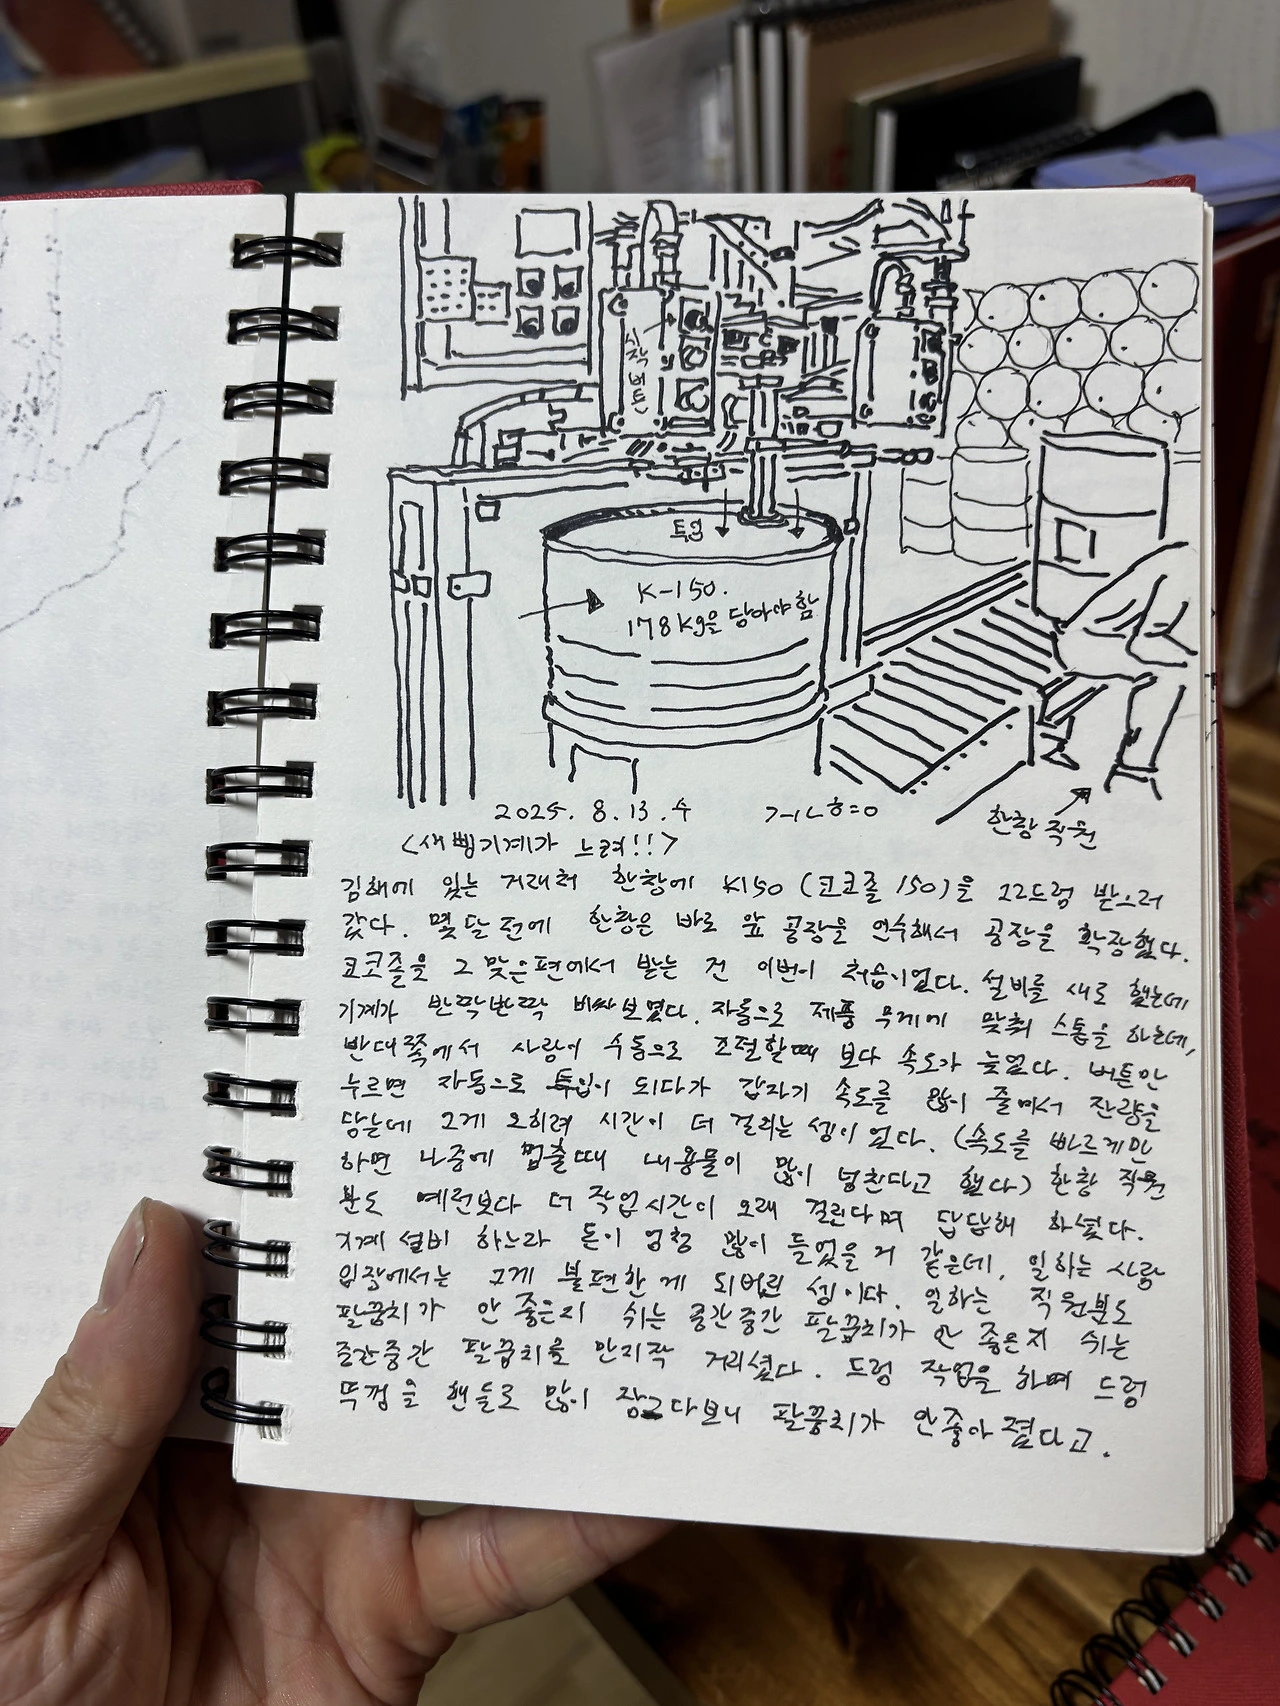 시작버튼
투입
K-150.
178kg을 담아야 함
한창 직원
2025. 8. 13. 수
<새삥기계가 느려!!>
김해에 있는 거래처 한창에 K150 (코코졸 150)을 22드럼 받으러
갔다. 몇 달 전에 한창은 바로 앞 공장을 인수해서 공장을 확장했다.
코코졸을 그 맞은편에서 받는 건 이번이 처음이었다. 설비를 새로 했는데
기계가 반딱반딱 비싸보였다. 자동으로 제품 무게에 맞춰 스톱을 하는데,
반대쪽에서 사람이 수동으로 조절할때 보다 속도가 늦었다. 버튼만
누르면 자동으로 투입이 되다가 갑자기 속도를 많이 줄여서 잔량을
담는데 그게 오히려 시간이 더 걸리는 셈이었다. (속도를 빠르게만
하면 나중에 멈출때 내용물이 많이 넘친다고 했다) 한창 직원
분도 예전보다 더 작업시간이 오래 걸린다며 답답해 하셨다.
기계 설비 하느라 돈이 엄청 많이 들었을 거 같은데, 일하는 사람
입장에서는 그게 불편한 게 되버린 셈이다. 일하는 직원분도
팔꿈치가 안 좋은지 쉬는 중간중간 팔꿈치가 안 좋은지 쉬는
중간중간 팔꿈치를 만지작 거리셨다. 드럼 작업을 하며 드럼
뚜껑을 핸들로 많이 잠그다보니 팔꿈치가 안좋아 졌다고.